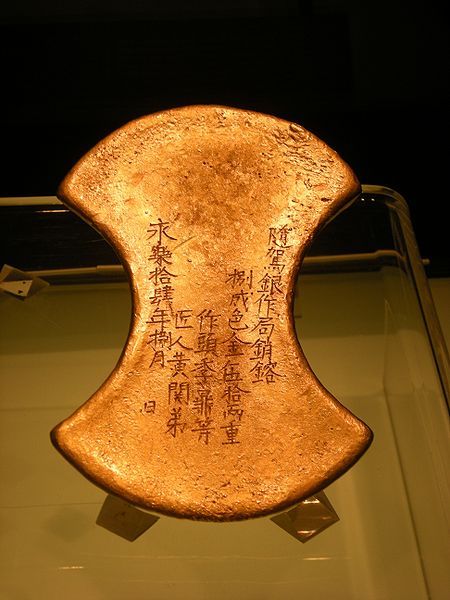 隨駕銀作局銷鎔
捌成色金伍拾兩重
作頭季鼐等
匠人黃關弟
永樂拾肆年捌月　日